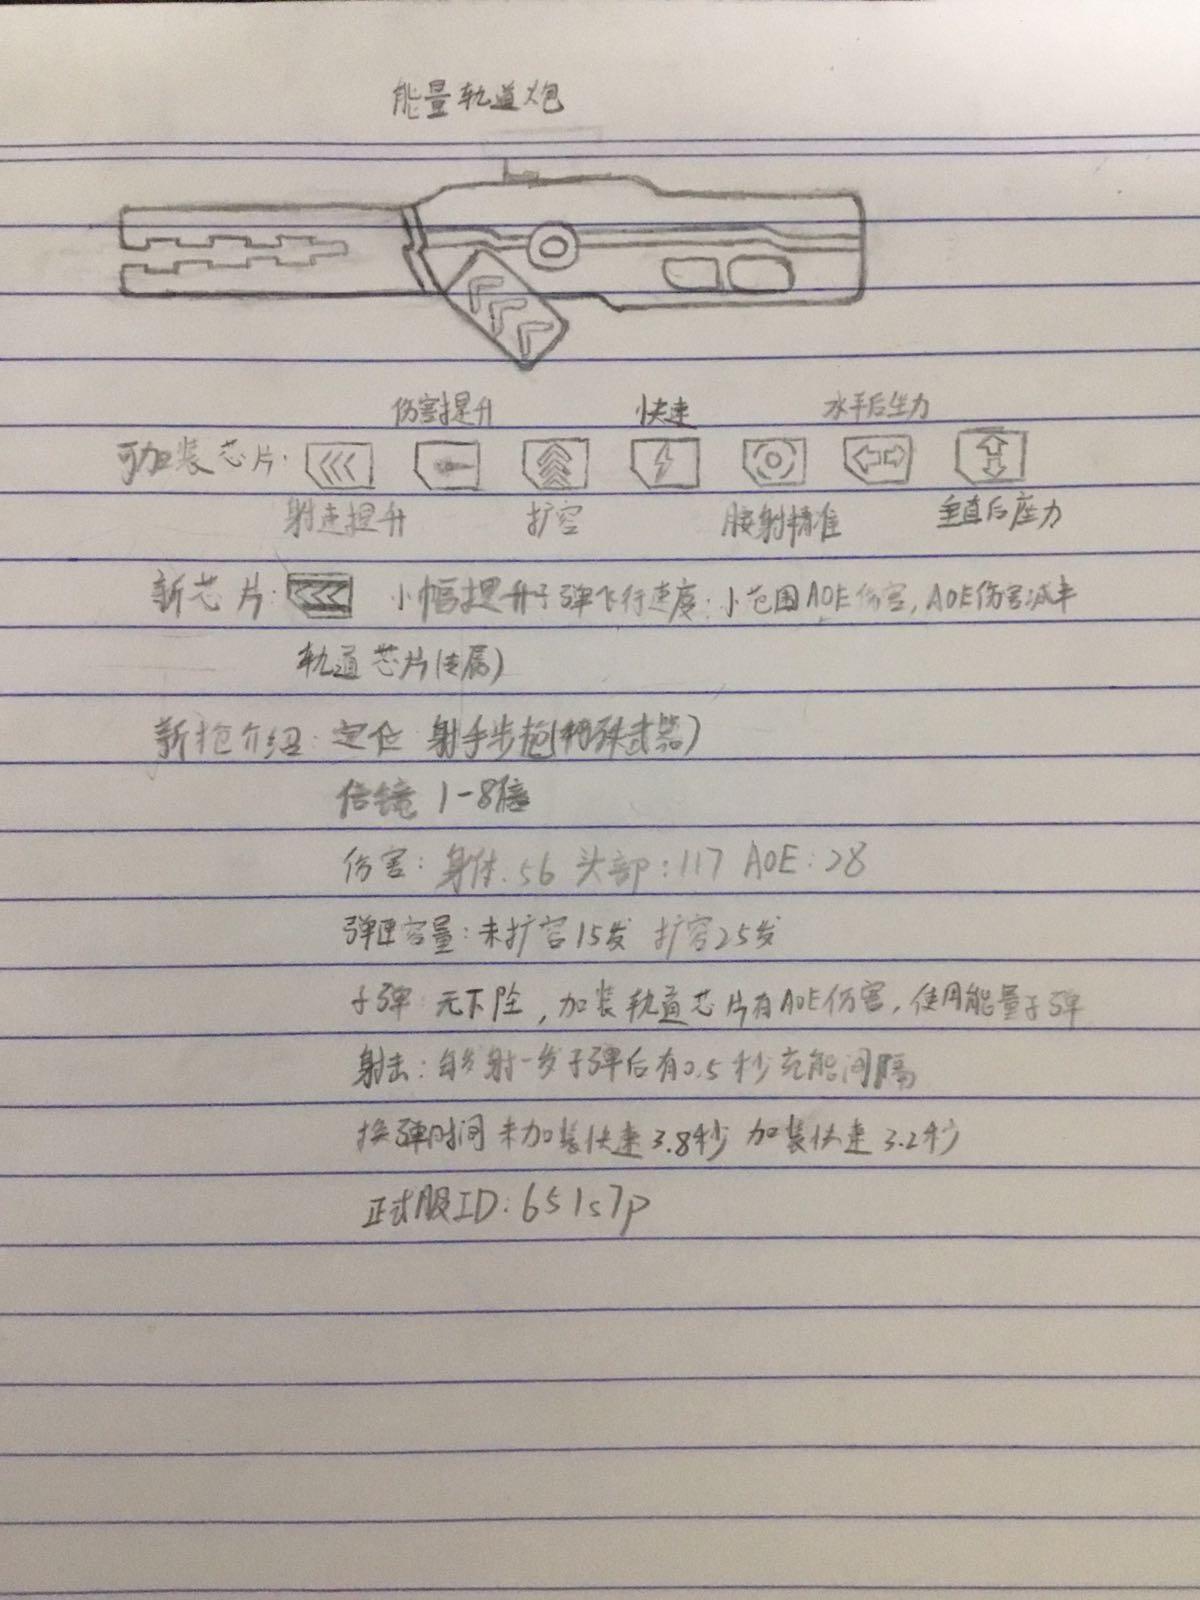 能量轨道炮
伤害提升 快速 水平后坐力
可加装芯片:
射速提升 扩容 腰射精准 垂直后座力
新芯片: 小幅提升子弹飞行速度; 小范围AOE伤害, AOE伤害减半
轨道芯片(专属)
新枪介绍: 定位 射手步枪(特殊武器)
倍镜 1-8倍
伤害: 身体:56 头部:117 AOE:28
弹匣容量: 未扩容15发 扩容25发
子弹: 无下坠, 加装轨道芯片有AOE伤害, 使用能量子弹
射击: 每发射一发子弹后有0.5秒充能间隔
换弹时间 未加装快速3.8秒 加装快速3.2秒
正式服ID: 651s7p